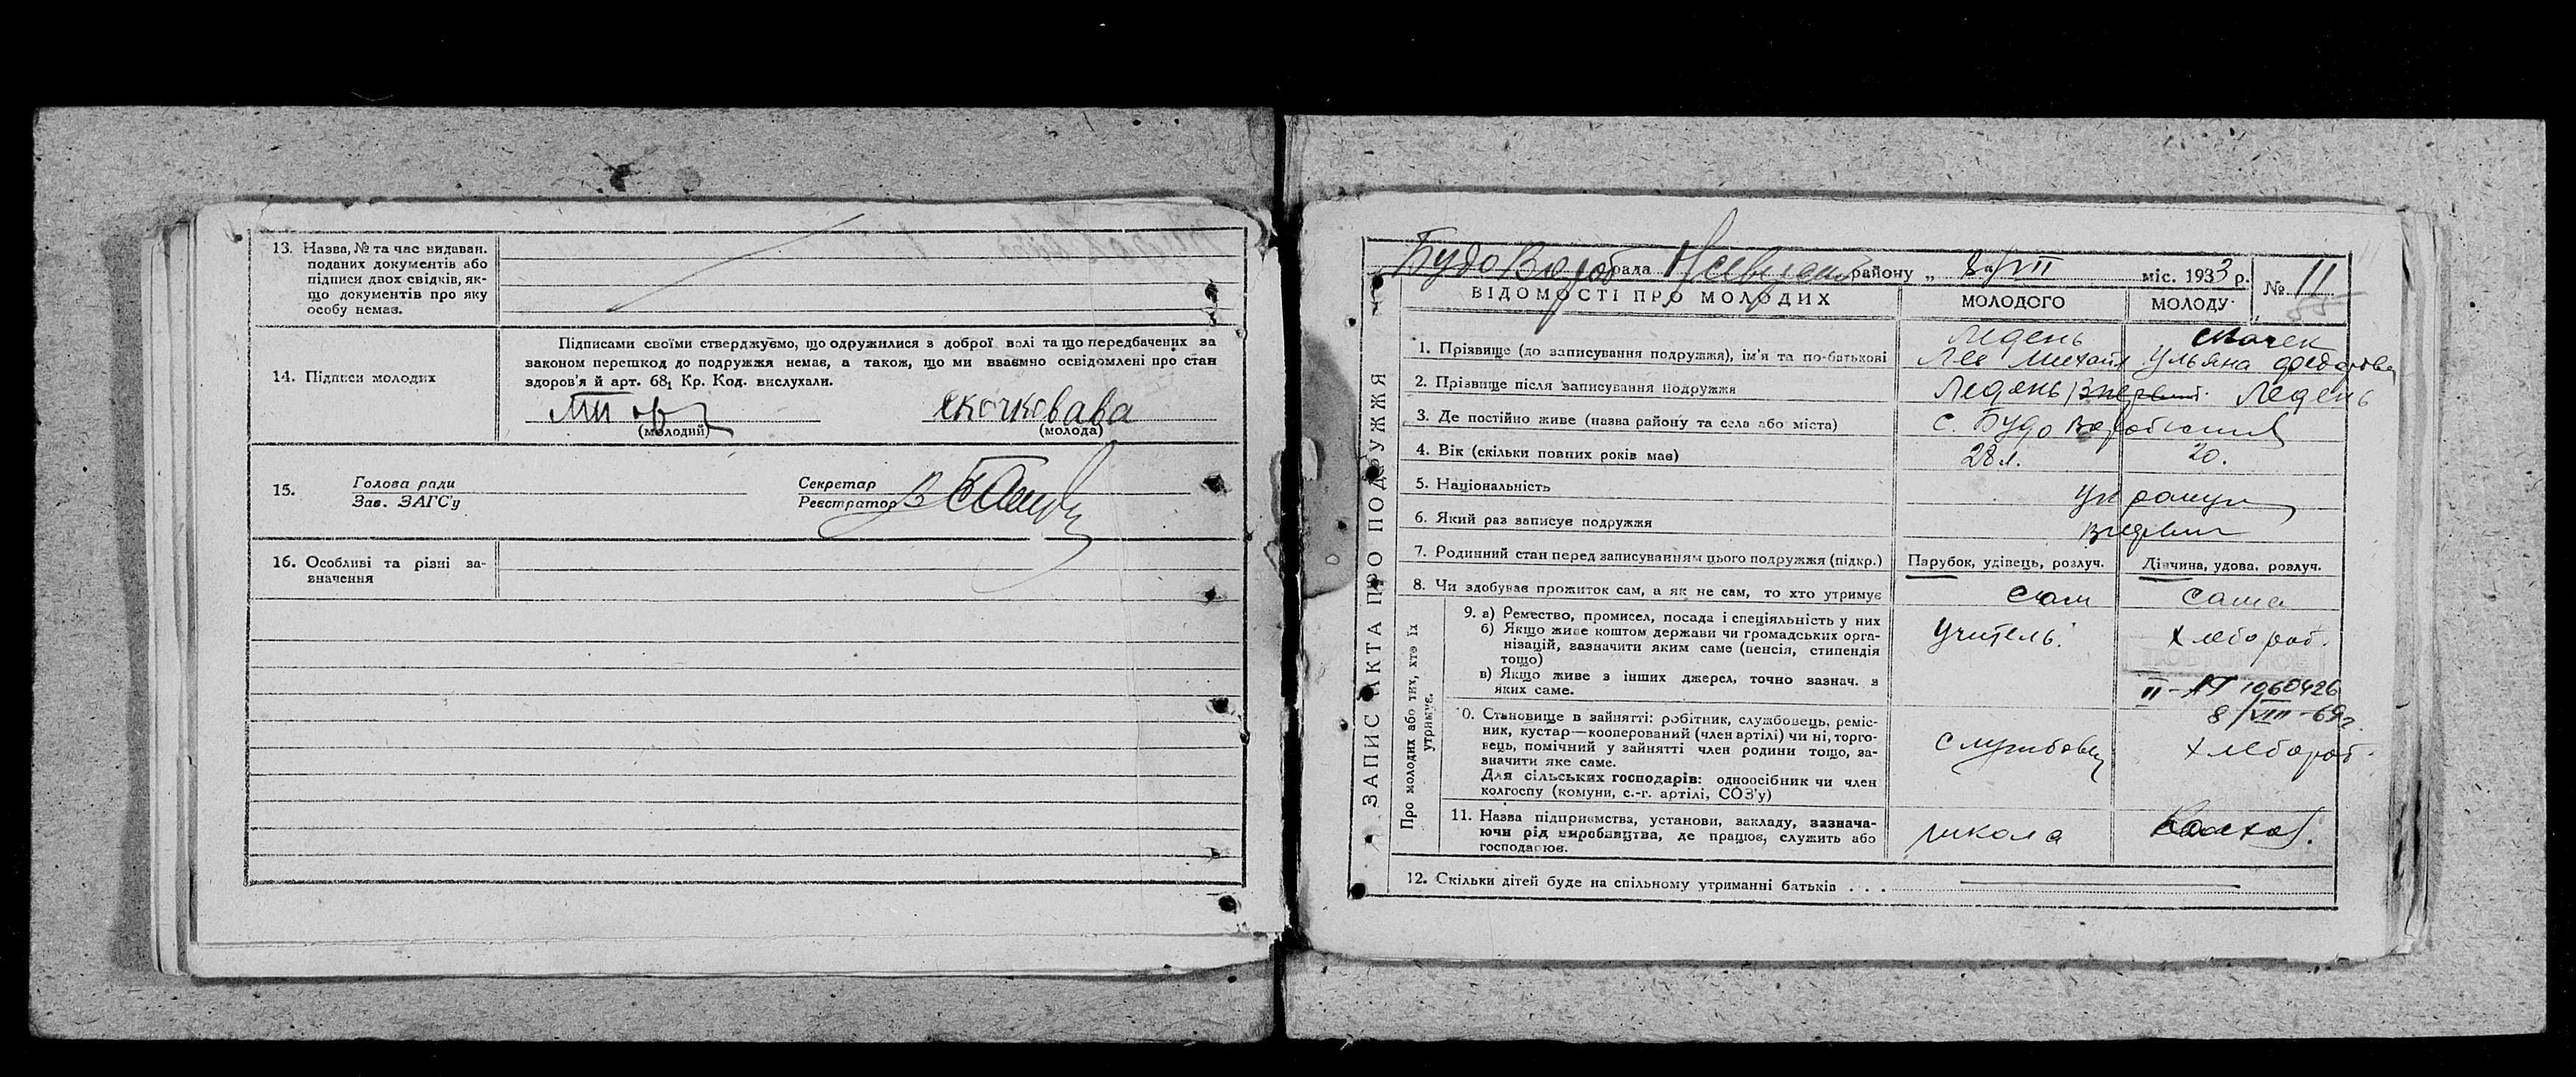 13. Назва, № та час видаван.
поданих документів або
підписи двох свідків, як-
що документів про яку
особу немає.
14. Підписи молодих
Підписами своїми стверджуємо, що одружилися з доброї волі та що передбачених за
законом перешкод до подружжя немає, а також, що ми взаємно освідомлені про стан
здоров'я й арт. 68₁ Кр. Код. вислухали.
(молодий) (молода)
15. Голова ради
Зав. ЗАГС'у
Секретар
Реєстратор
16. Особливі та різні за-
значення
ЗАПИС АКТА ПРО ПОДРУЖЖЯ
Будо Вороб рада району „ 8/VII міс. 1933 р. № 11
ВІДОМОСТІ ПРО МОЛОДИХ МОЛОДОГО МОЛОДУ
1. Прізвище (до записування подружжя), ім'я та по-батькові
Ледень
Лев Михайл Ульяна Федоровна
2. Прізвище після записування подружжя Ледень Ледень
3. Де постійно живе (назва району та села або міста) с. Будо
4. Вік (скільки повних років має) 28 л. 20.
5. Національність
6. Який раз записує подружжя
7. Родинний стан перед записуванням цього подружжя (підкр.) Парубок, удівець, розлуч. Дівчина, удова, розлуч.
8. Чи здобував прожиток сам, а як не сам, то хто утримує сам сама
Про молодих або тих, хто їх
утримує.
9. а) Ремество, промисел, посада і спеціяльність у них
б) Якщо живе коштом держави чи громадських орга-
нізацій, зазначити яким саме (пенсія, стипендія
тощо)
в) Якщо живе з інших джерел, точно зазнач. з
яких саме.
учитель. хлебороб.
II-АТ 1060426
8/VIII-69г
10. Становище в зайнятті: робітник, службовець, реміс-
ник, кустар—кооперований (член артілі) чи ні, торго-
вець, помічний у зайнятті член родини тощо, за-
значити яке саме.
Для сільських господарів: одноосібник чи член
колгоспу (комуни, с.-г. артілі, СОЗ'у)
службовец хлебороб.
11. Назва підприємства, установи, закладу, зазнача-
ючи рід виробництва, де працює, служить або
господарює.
школа
12. Скільки дітей буде на спільному утриманні батьків . . .